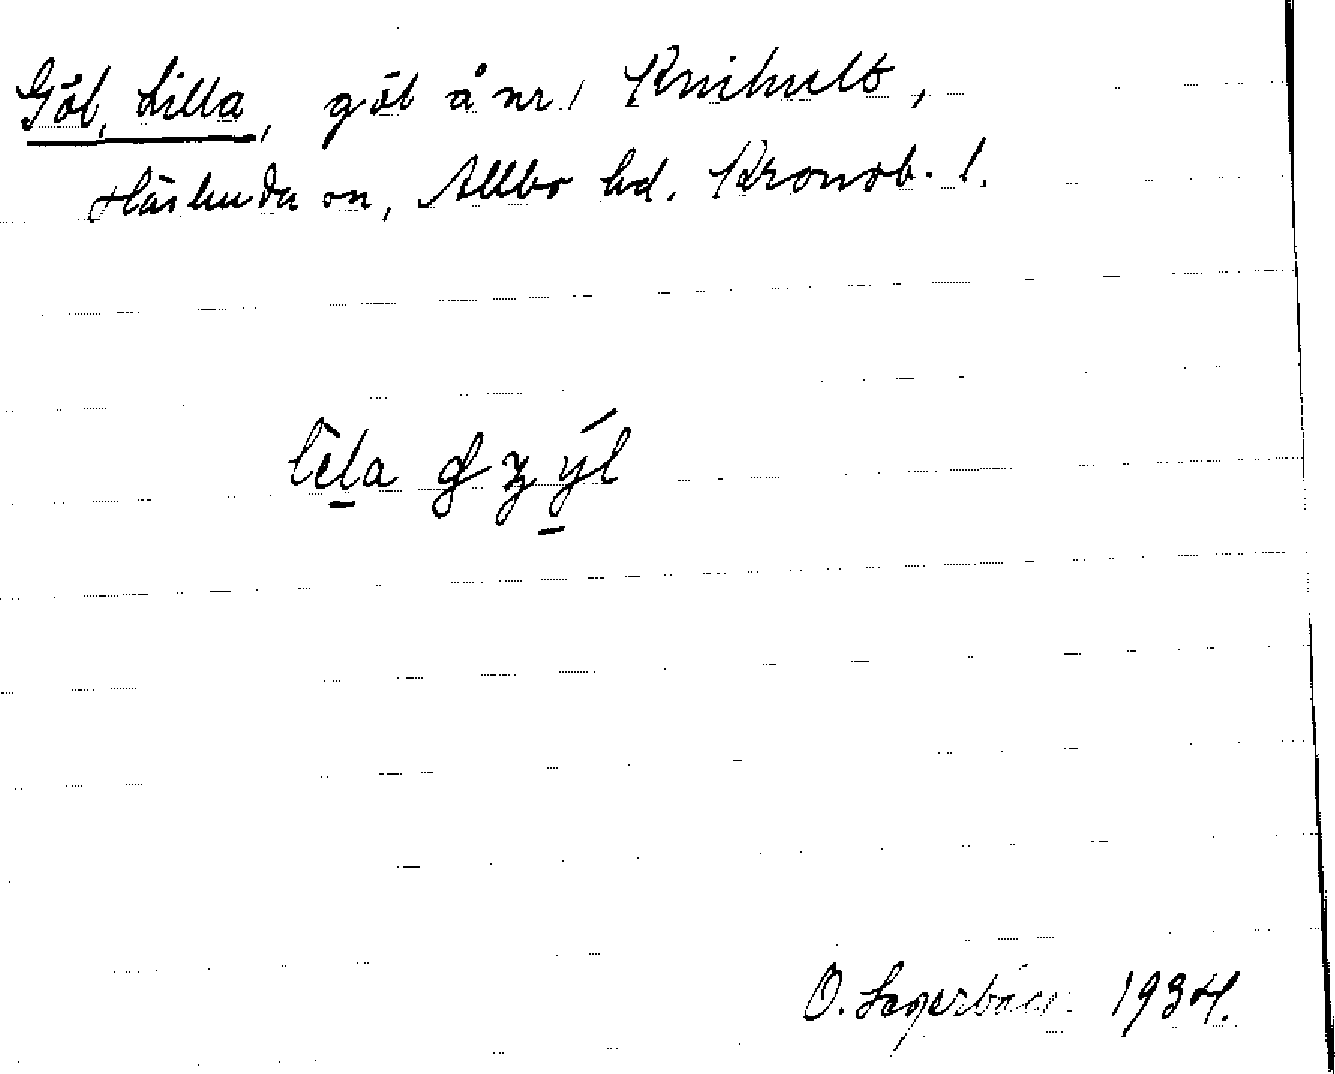 Göl, Lilla, göl å nr 1 Knihult,
Härlunda sn, Allbo hd. Kronob. l.
O. Lagerbäck 1934.